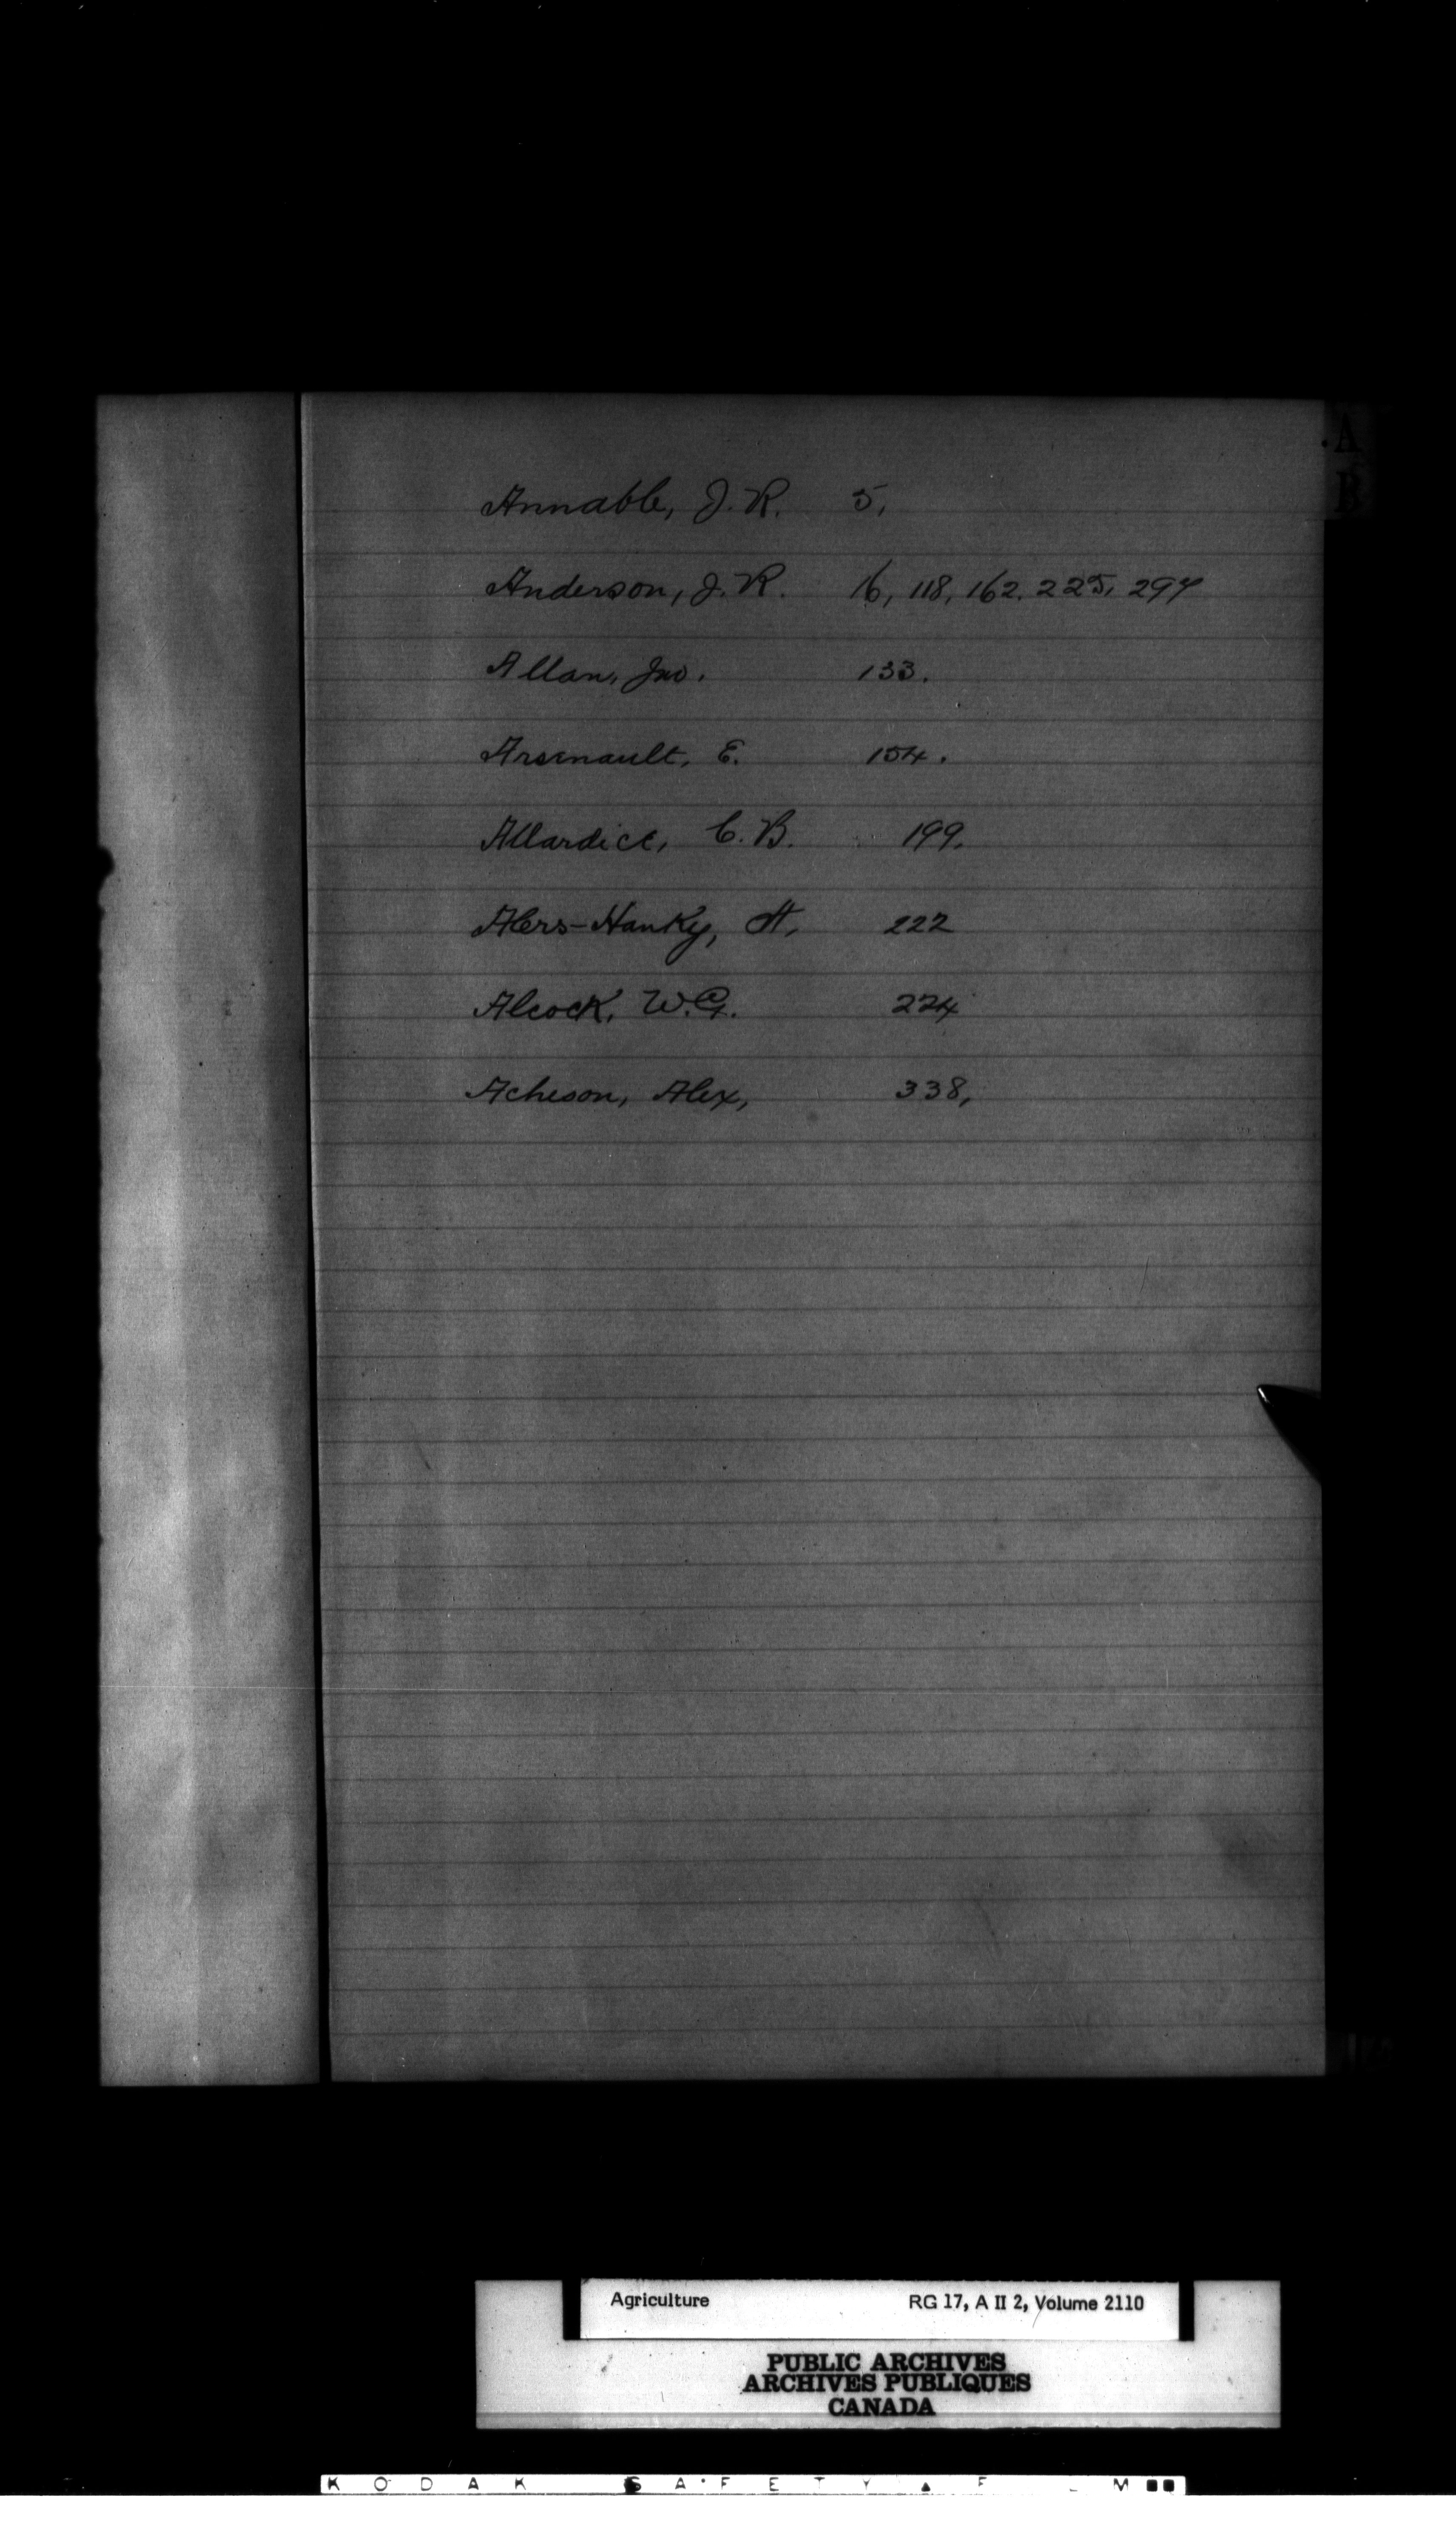 A
B
Annable, J. R. 5,
Anderson, J. R. 16, 118, 162, 225, 297
Allan, Jno. 133.
Arsenault, E. 154.
Allardice, C. B. 199.
Alers-Hanky, H. 222
Alcock, W. G. 224
Acheson, Alex, 338,
Agriculture RG 17, A II 2, Volume 2110
PUBLIC ARCHIVES
ARCHIVES PUBLIQUES
CANADA
KODAK SAFETY